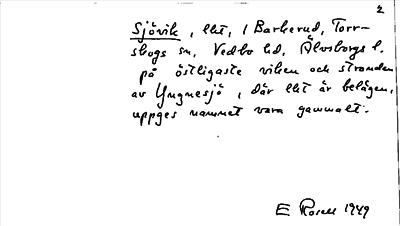 2
Sjövik, lht, i Barkerud, Torr-
skogs sn, Vedbo hd, Älvsborgs l.
på östligaste viken och stranden
av Yngnesjö, där lht är belägen,
uppges namnet vara gammalt.
E Rosell 1949